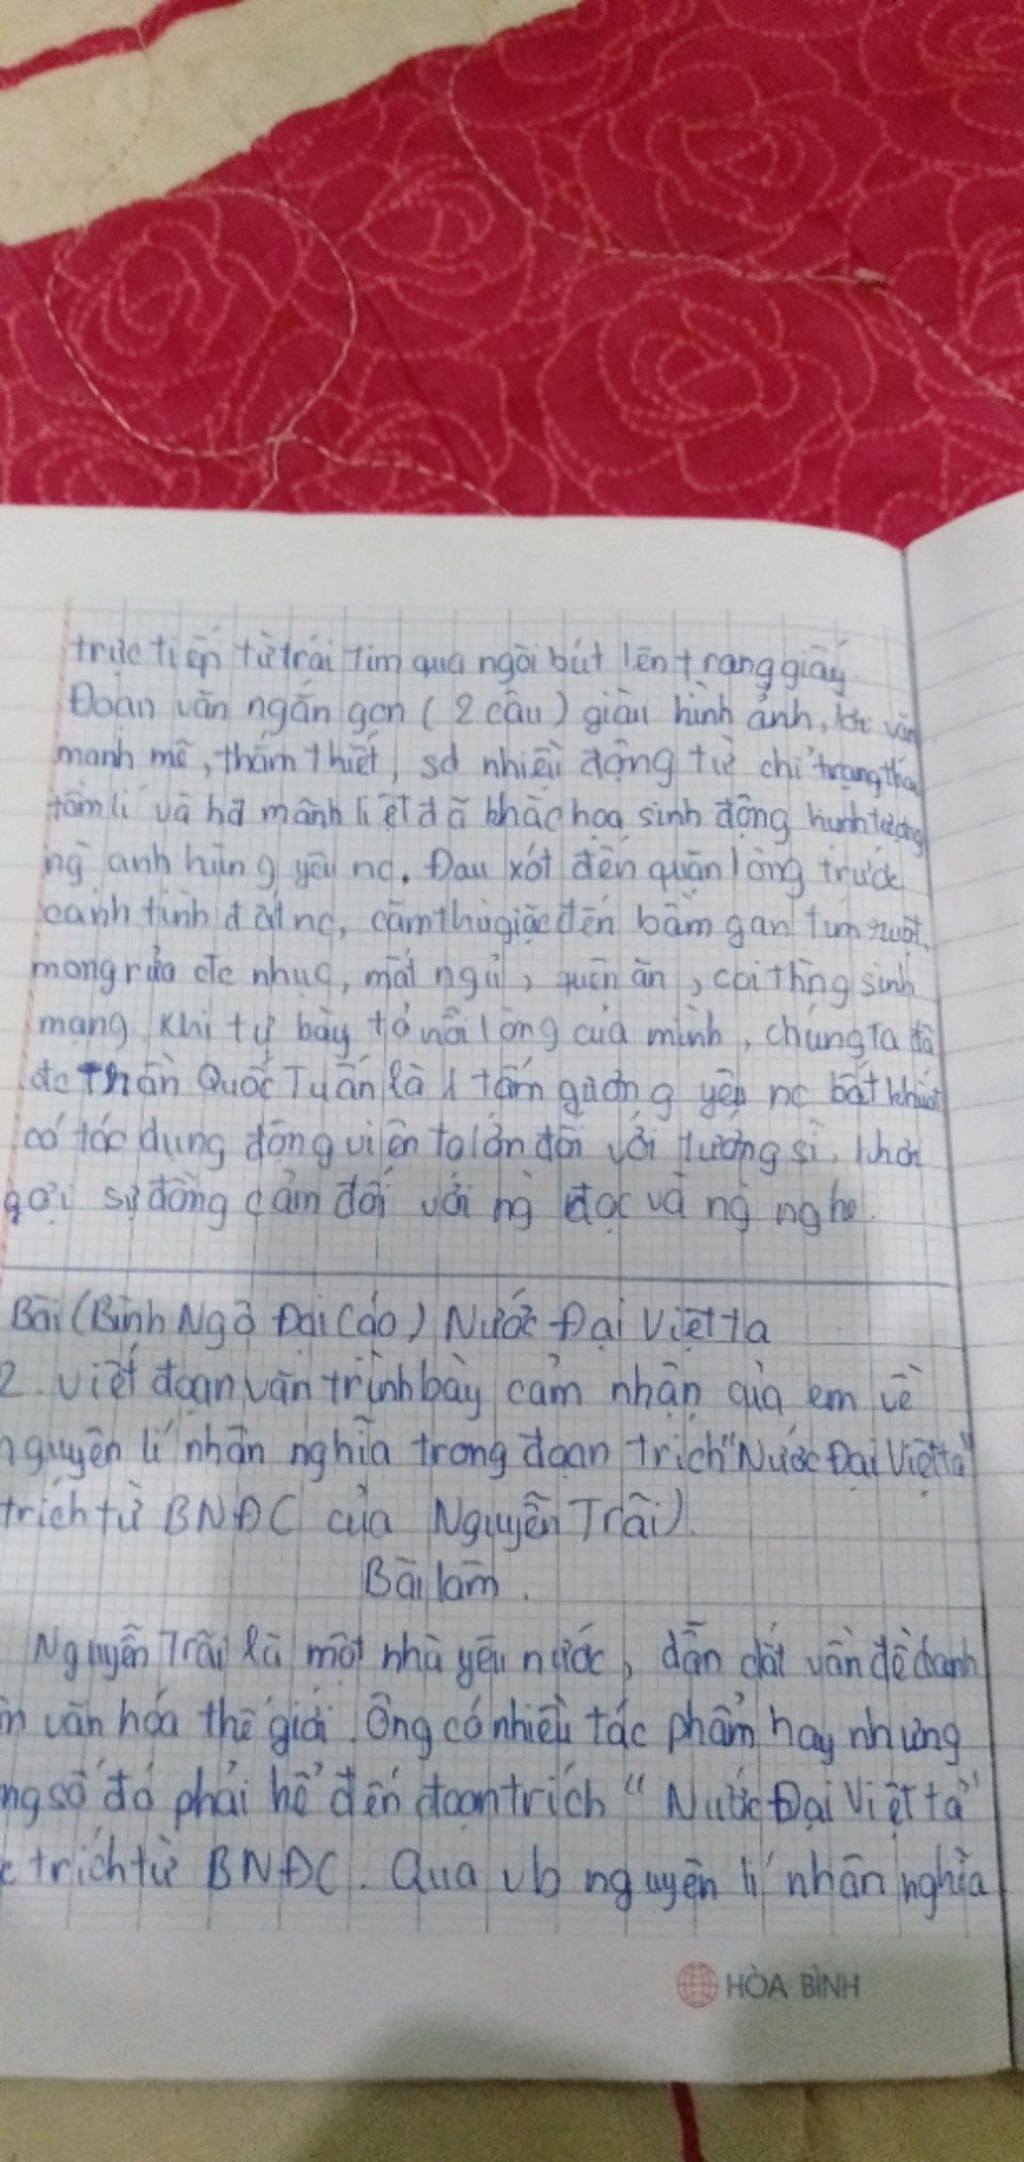 trực tiếp từ trái tim qua ngòi bút lên trang giấy.
Đoạn văn ngắn gọn (2 câu) giàu hình ảnh, lời văn
mạnh mẽ, thắm thiết, sd nhiều động từ chỉ trạng thái
tâm lí và hđ mãnh liệt đã khắc họa sinh động hình tượng
ng` anh hùng yêu nc. Đau xót đến quặn lòng trước
cảnh tình đất nc, căm thù giặc đến bầm gan tím ruột,
mong rửa đc nhục, mất ngủ, quên ăn, coi thg sinh
mạng. Khi tự bày tỏ nỗi lòng của mình, chúng ta
đc Trần Quốc Tuấn là 1 tấm gương yêu nc bất khuất
có tác dụng động viên to lớn đối với tướng sĩ, khơi
gợi sự đồng cảm đối với ng` đọc và ng` nghe.
Bài (Bình Ngô Đại Cáo) Nước Đại Việt ta
2. Viết đoạn văn trình bày cảm nhận của em về
nguyên lí nhân nghĩa trong đoạn trích "Nước Đại Việt ta"
trích từ BNĐC của Nguyễn Trãi).
Bài làm.
Nguyễn Trãi là một nhà yêu nước, dẫn dắt vấn đề danh
văn hóa thế giới. Ông có nhiều tác phẩm hay nhưng
ng số đó phải kể đến đoạn trích "Nước Đại Việt ta"
trích từ BNĐC. Qua vb nguyên lí nhân nghĩa
HÒA BÌNH